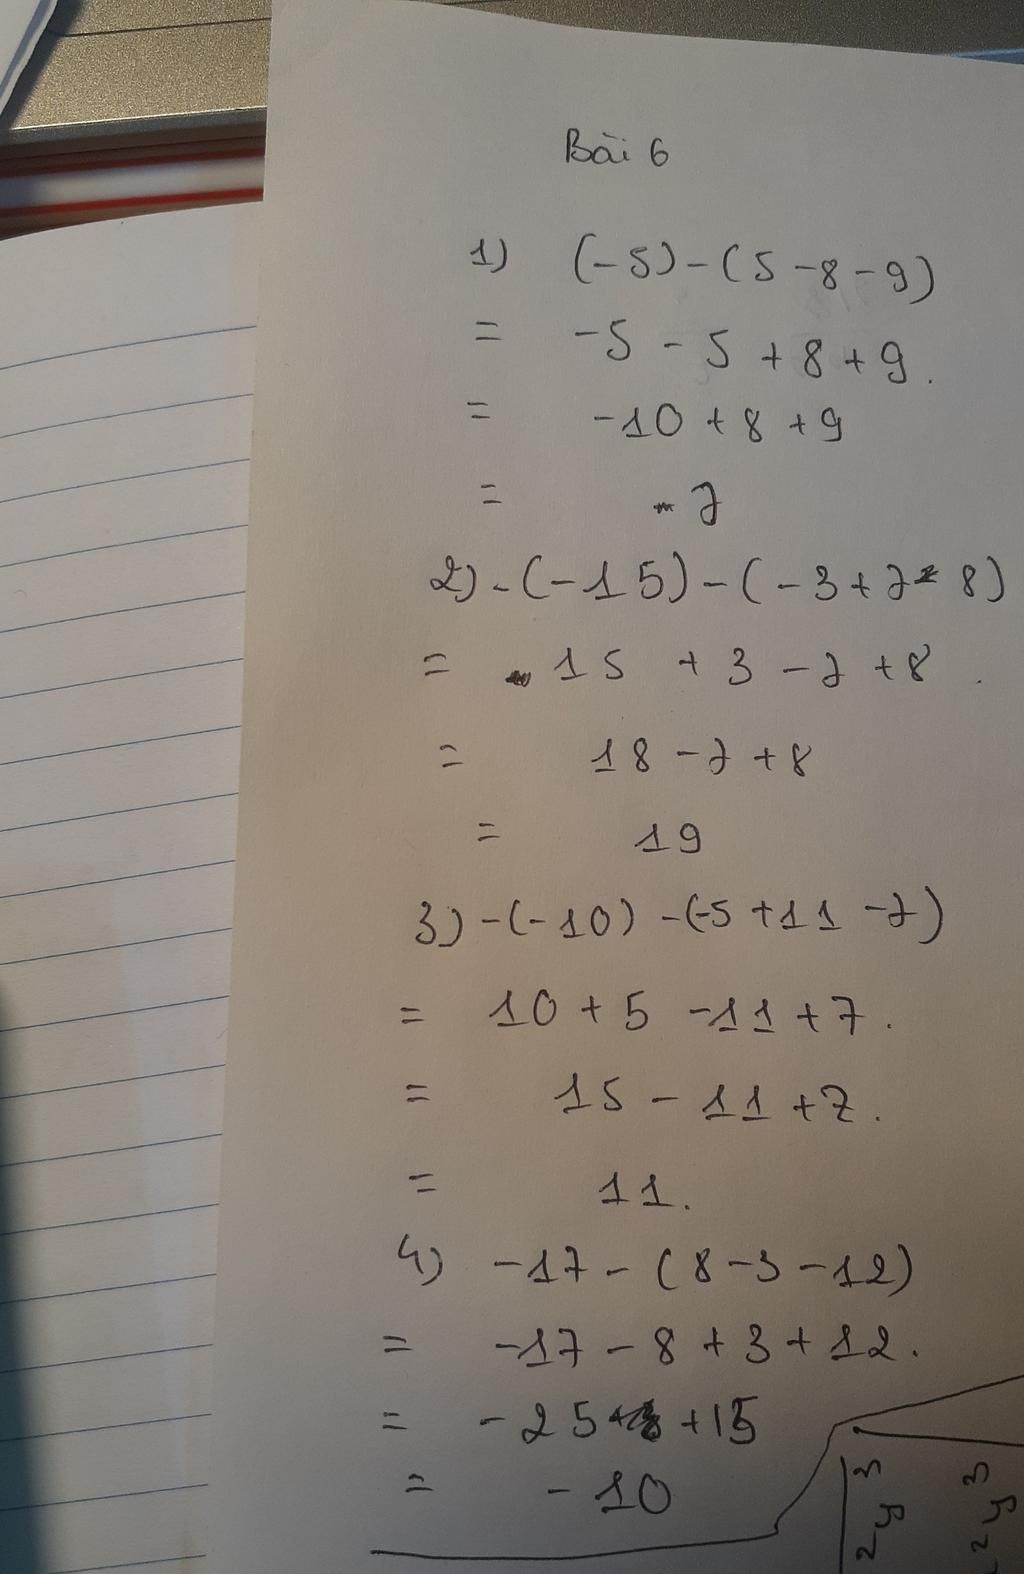 Bài 6
1) (-5)-(5-8-9)
= -5 - 5 + 8 + 9.
= -10 + 8 + 9
= 7
2) -(-15)-(-3+7-8)
= 15 + 3 - 7 + 8.
= 18 - 7 + 8
= 19
3) -(-10) -(-5+11-7)
= 10 + 5 - 11 + 7.
= 15 - 11 + 7.
= 11.
4) -17 - (8-3-12)
= -17 - 8 + 3 + 12.
= -25 +15
= -10
2y3
2y3